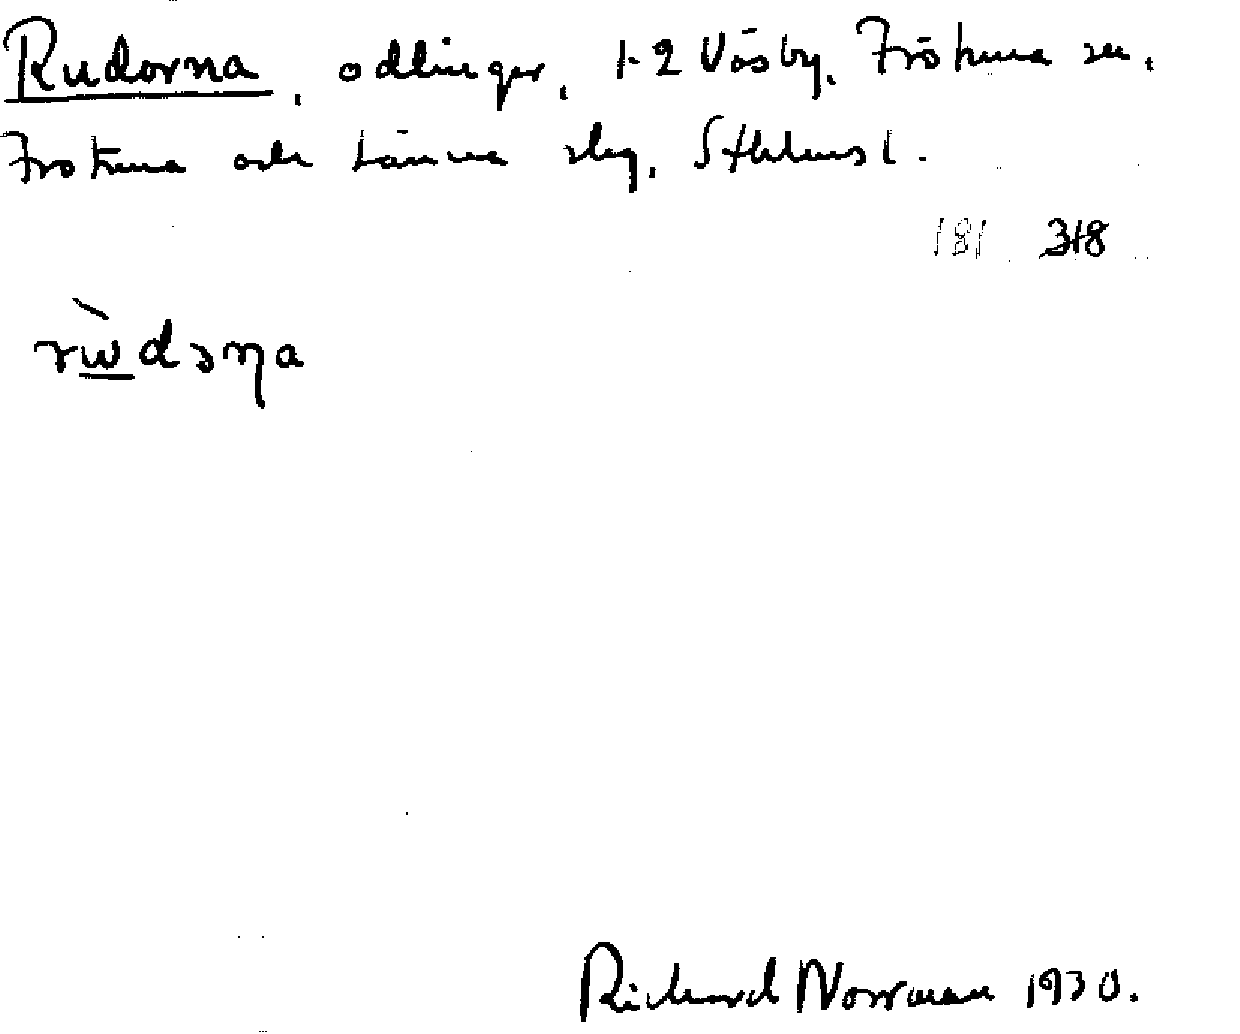 Rudorna, odlingar, 1-2 Väsby, Frötuna sn.
Frötuna och Länna slg, Sthlms l.
181 318
rùdəṇa
Richard Norrman 1930.